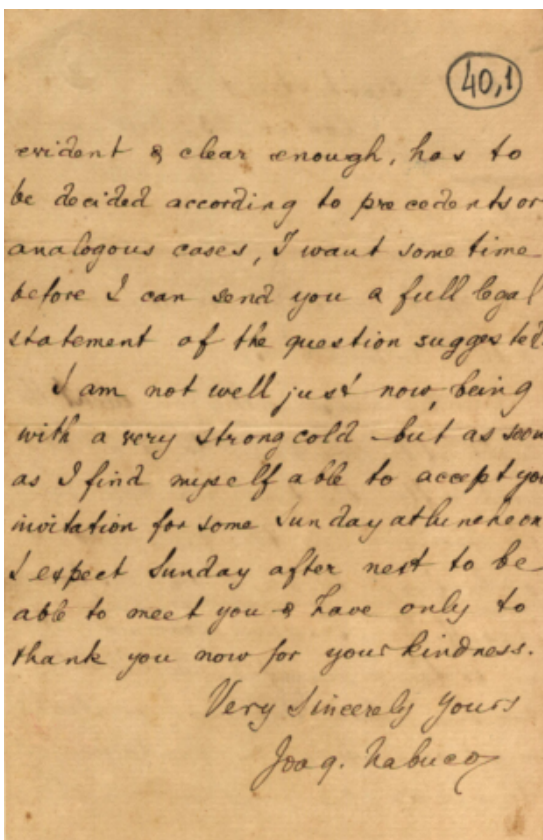 40,1
evident & clear enough, has to
be decided according to precedents or
analogous cases, I want some time
before I can send you a full legal
statement of the question suggested.
I am not well just now, being
with a very strong cold – but as soon
as I find myself able to accept you
invitation for some Sunday at luncheon
I expect Sunday after next to be
able to meet you & have only to
thank you now for your kindness.
Very Sincerely Yours
Joaq. Nabuco